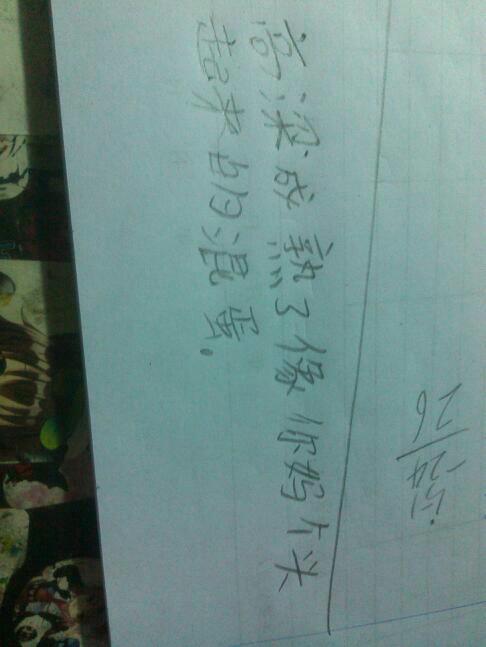 高梁成熟了像你妈个头
起来的混蛋.